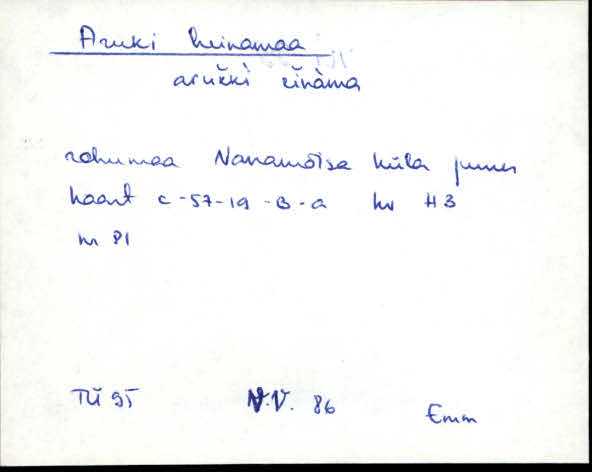 Aruki heinamaa
arukki einàma
rohumaa Vanamõisa küla juures
kaart C-57-19-B-a kv H3
nr 81
TÜ 95 N.V. 86 Emm